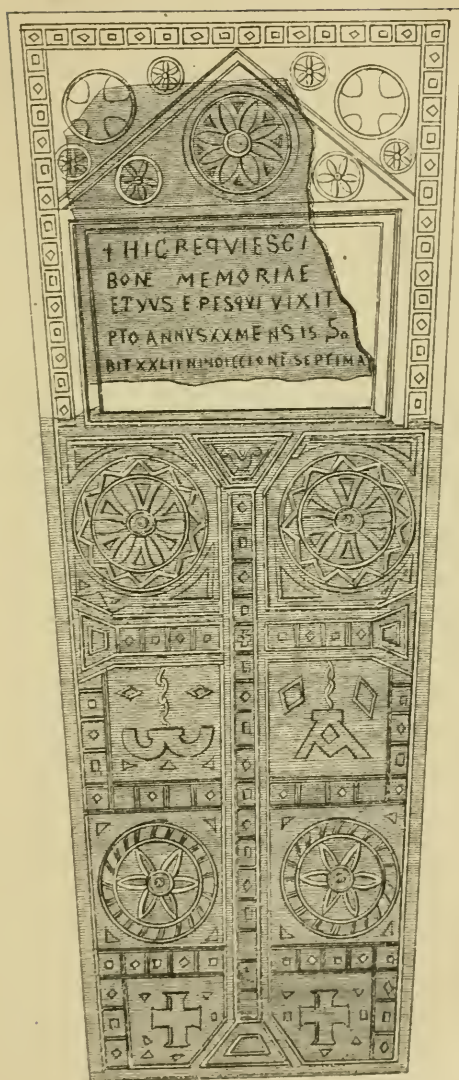 † HIC REQVIESCI
BONE MEMORIAE
ETYVS EPESQVI VIXIT
PTO ANNVSXXMENSIS So
BIT XXLII ENINDICCIONE SEPTIMA
ω A